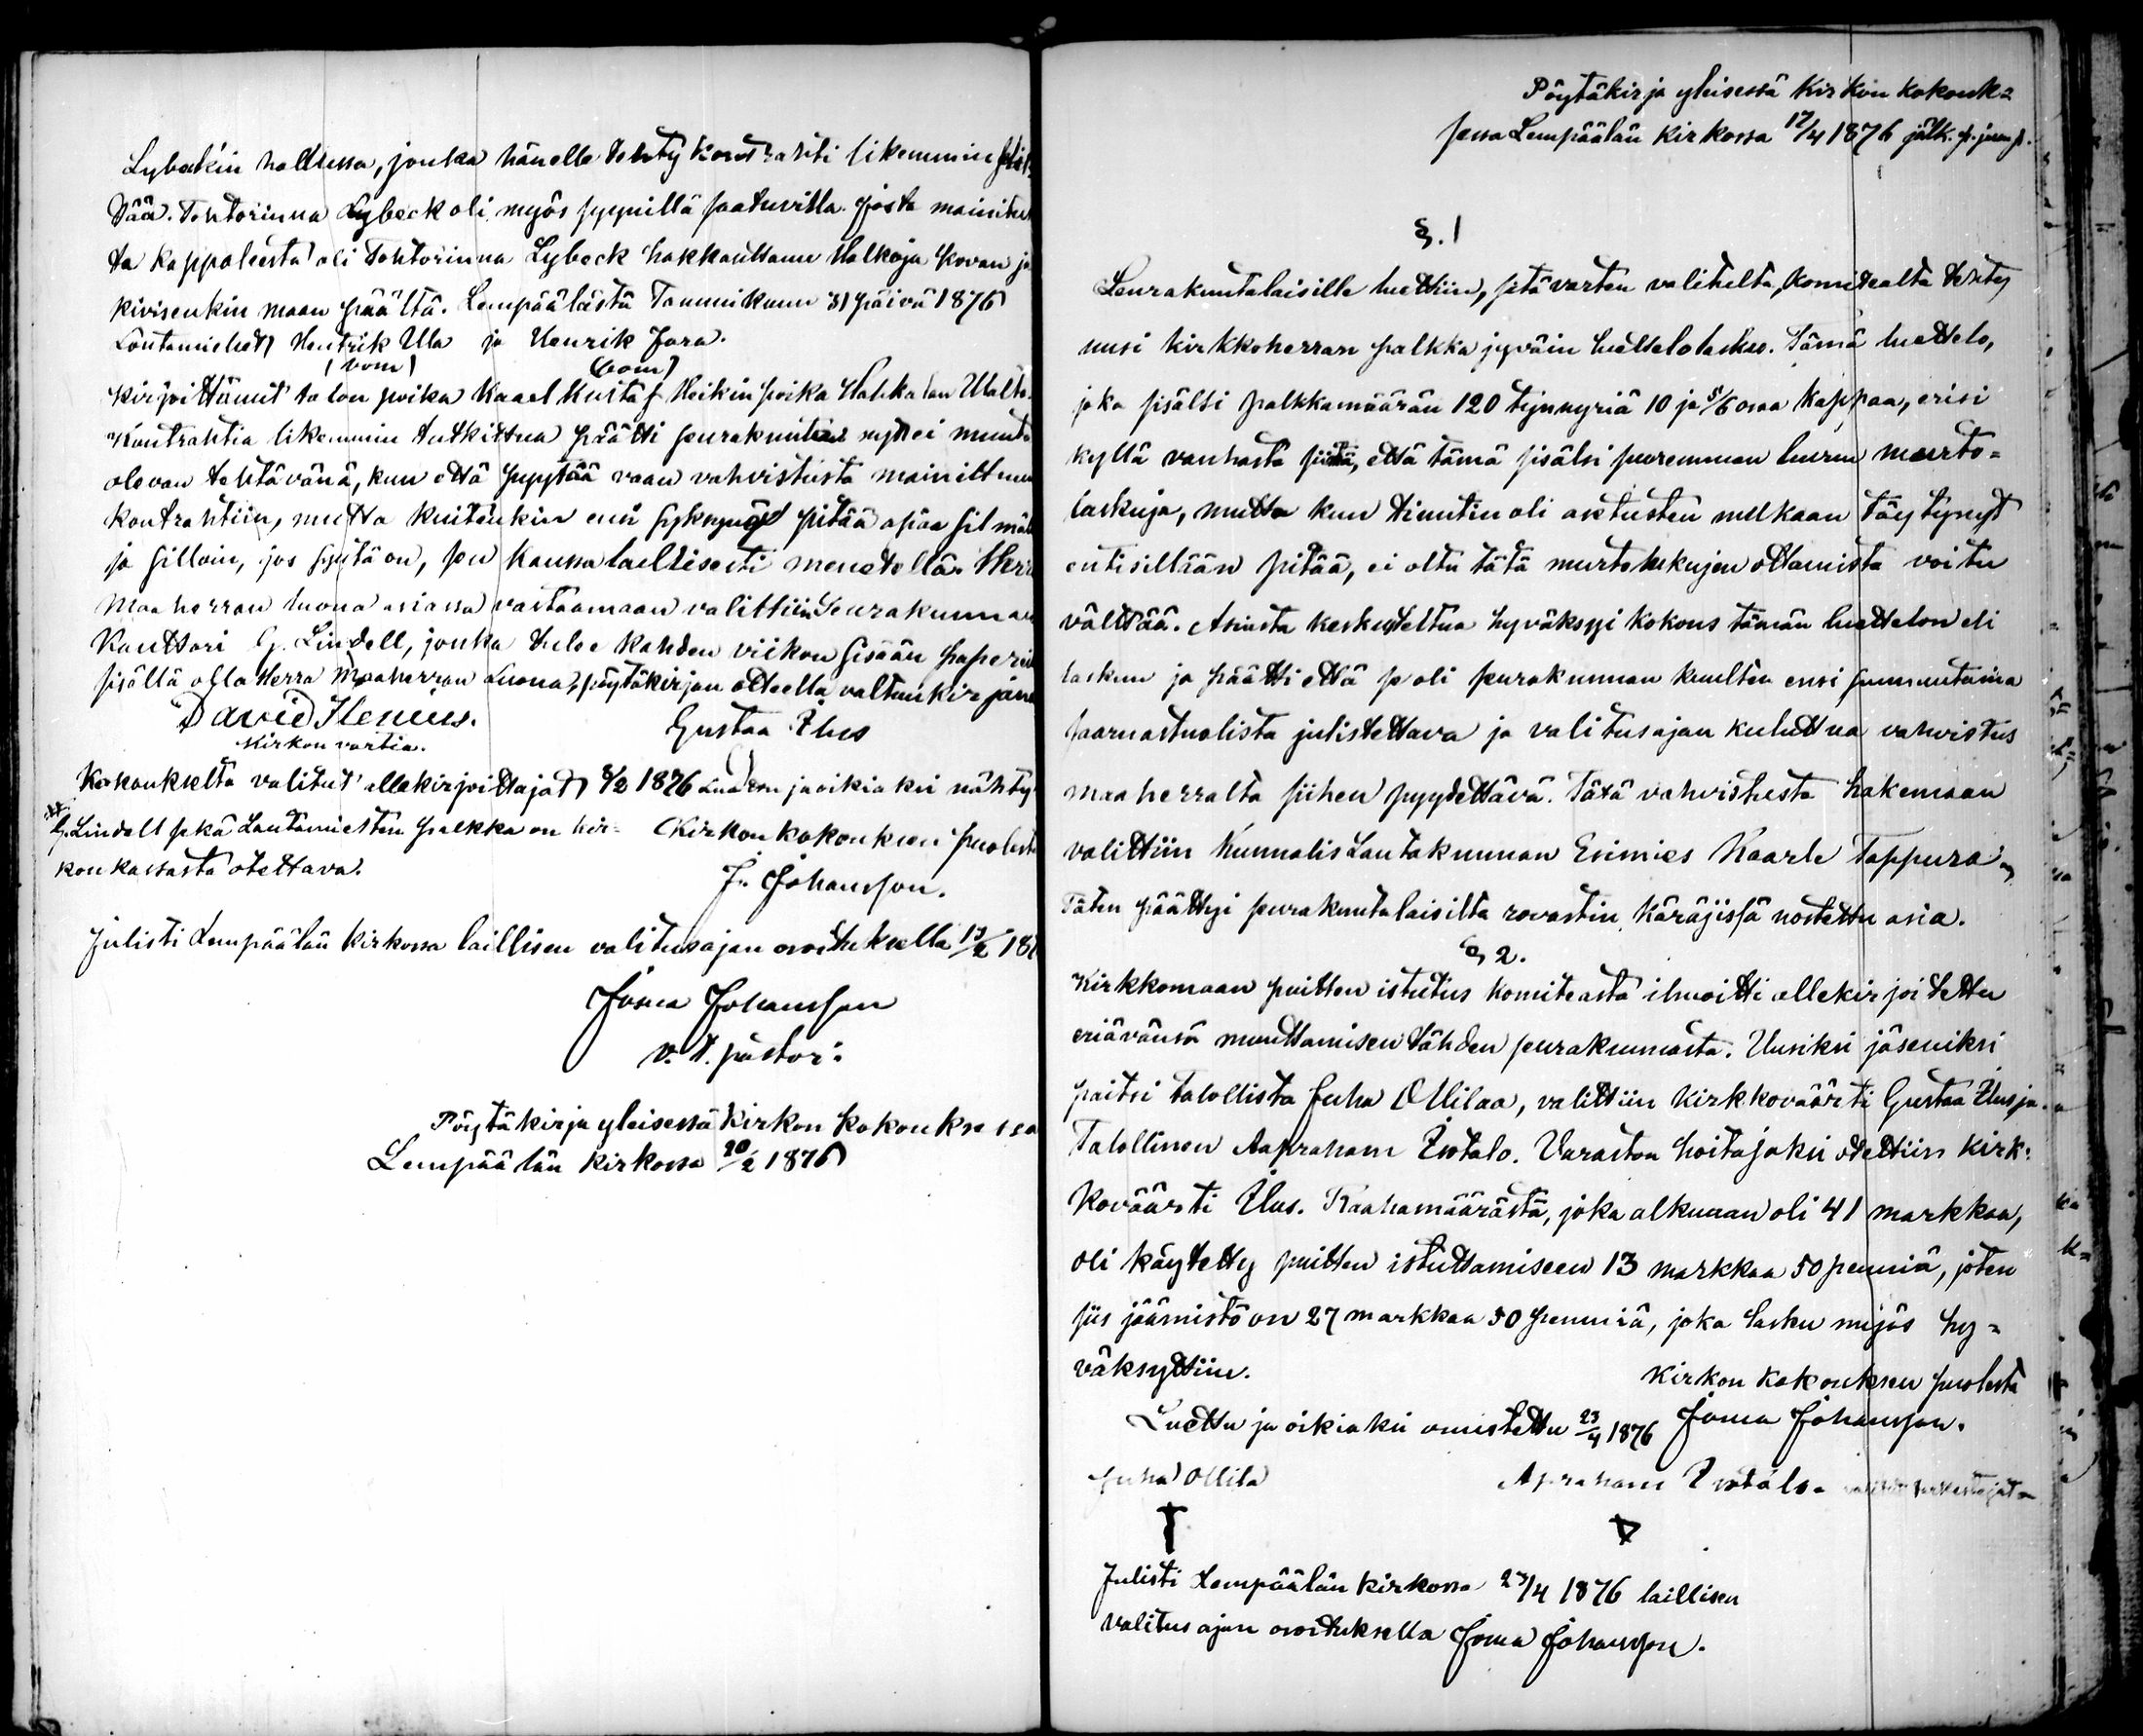 Lybeckin hallussa, jonka hänelle tehty kontrahti likemmin selit-
tää. Tohtorinna Lybeck oli myös syynillä saatuvilla. Josta mainitus
ta kappaleesta oli Tohtorinna Lybeck hakkauttanu Halkoja kovan ja
kivisenkin maan päältä. Lempäälästä Tammikuun 31 päivä 1876
Lautamiehet Henrik Ulla ja Henrik Jora.
(bom) (bom)
kirjoittanut talon poika Kaael Kustaf Heikin poika Hakkalan
Kontrahtia likemmin tutkittua päätti seurakunta nyt ei muuta
olevan tehtävänä, kun että pyytää vaan vahvistusta mainittuun
kontrahtiin, mutta kuitenkin ensi syksynä pitää asiaa silmällä
ja silloin, jos syytä on, sen kanssa laillisesti menetellä. Herra
Maaherran luona asiassa vastaamaan valittiin Seurakunnan
Kanttori G. Lindell, jonka tulee kahden viikon sisään paperein
sisällä olla Herra Maaherran Luona, pöytäkirjan otteella valtuuskirjana
David Henius. Gustaa Ilus
Kirkon vartia.
Kokoukselta valitut allekirjoittajat 8/2 1876 Luettu ja oikiaksi nähty
G. Lindell sekä Lautamiesten palkka on kir= Kirkon kokouksen puolesta
kon kassasta otettava. J. Johansson.
Julisti Lempäälän kirkossa laillisen valitusajan osoituksella 13/2 187
Joma Johansson
v. t. pastori
Pöytäkirja yleisessä kirkon kokouksessa
Lempäälän kirkossa 20/2 1876
Pöytäkirja yleisessä kirkon kokouk=
sessa Lempäälän kirkossa 17/4 1876 jälk. p. jum. p.
§. 1
Seurakuntalaisille luettiin, sitä varten valitulta, komitealta tehty
uusi kirkkoherran palkka jyväin luettelo lasku. Tämä luettelo,
joka sisälsi palkkamäärän 120 tynnyriä 10 ja 5/6 osaa kappaa, erisi
kyllä vanhasta siitä, että tämä sisälsi suuremman luvun murto=
laskuja, mutta kun tinutin oli asetusten mukaan täytynyt
entisillään pitää, ei oltu tätä murtolukujen ottamista voitu
välttää. Asiasta keskusteltua hyväksyi kokous tämän luettelon eli
laskun ja päätti että se oli seurakunnan kuulten ensi sunnuntaina
saarnastuolista julistettava ja valitusajan kuluttua vahvistus
maaherralta siihen pyydettävä. Tätä vahvistusta hakemaan
valittiin Kunnalis Lautakunnan Esimies Kaarle Tappura.
Täten päättyi seurakuntalaisilta rovastin käräjissä nostettu asia.
§ 2.
Kirkkomaan puitten istutus komiteasta ilmoitti allekirjoitettu
eriävänsä muuttamisen tähden seurakunnasta. Uusiksi jäseniksi
paitsi talollista Juha Ollilaa, valittiin kirkkoväärti Gustaa Ilus ja
Talollinen Aapraham Isotalo. Varaston hoitajaksi otettiin kirk=
koväärti Ilus. Raahamäärästä, joka alkuaan oli 41 markkaa,
oli käytetty puitten istuttamiseen 13 markkaa 50 penniä, joten
siis jäämistö on 27 markkaa 50 penniä, joka lasku myös hy=
väksyttiin. Kirkon kokouksen puolesta
Luettu ja oikiaksi omistettu 23/4 1876 Joma Johansson.
Juha Ollila Apraham Isotalo. valitut tarkastajat
Julisti Lempäälän kirkossa 23/4 1876 laillisen
valitus ajan osoituksella Joma Johansson.